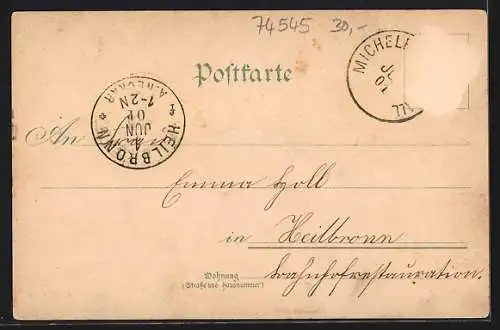 74545 30,-
MICHELF
JU
01
Postkarte
HEILBRONN
A. NECKAR
1-2N
01
JUN
4
An
Emma Holl
in Heilbronn
Bahnhofrestauration.
Wohnung
(Straße und Hausnummer)